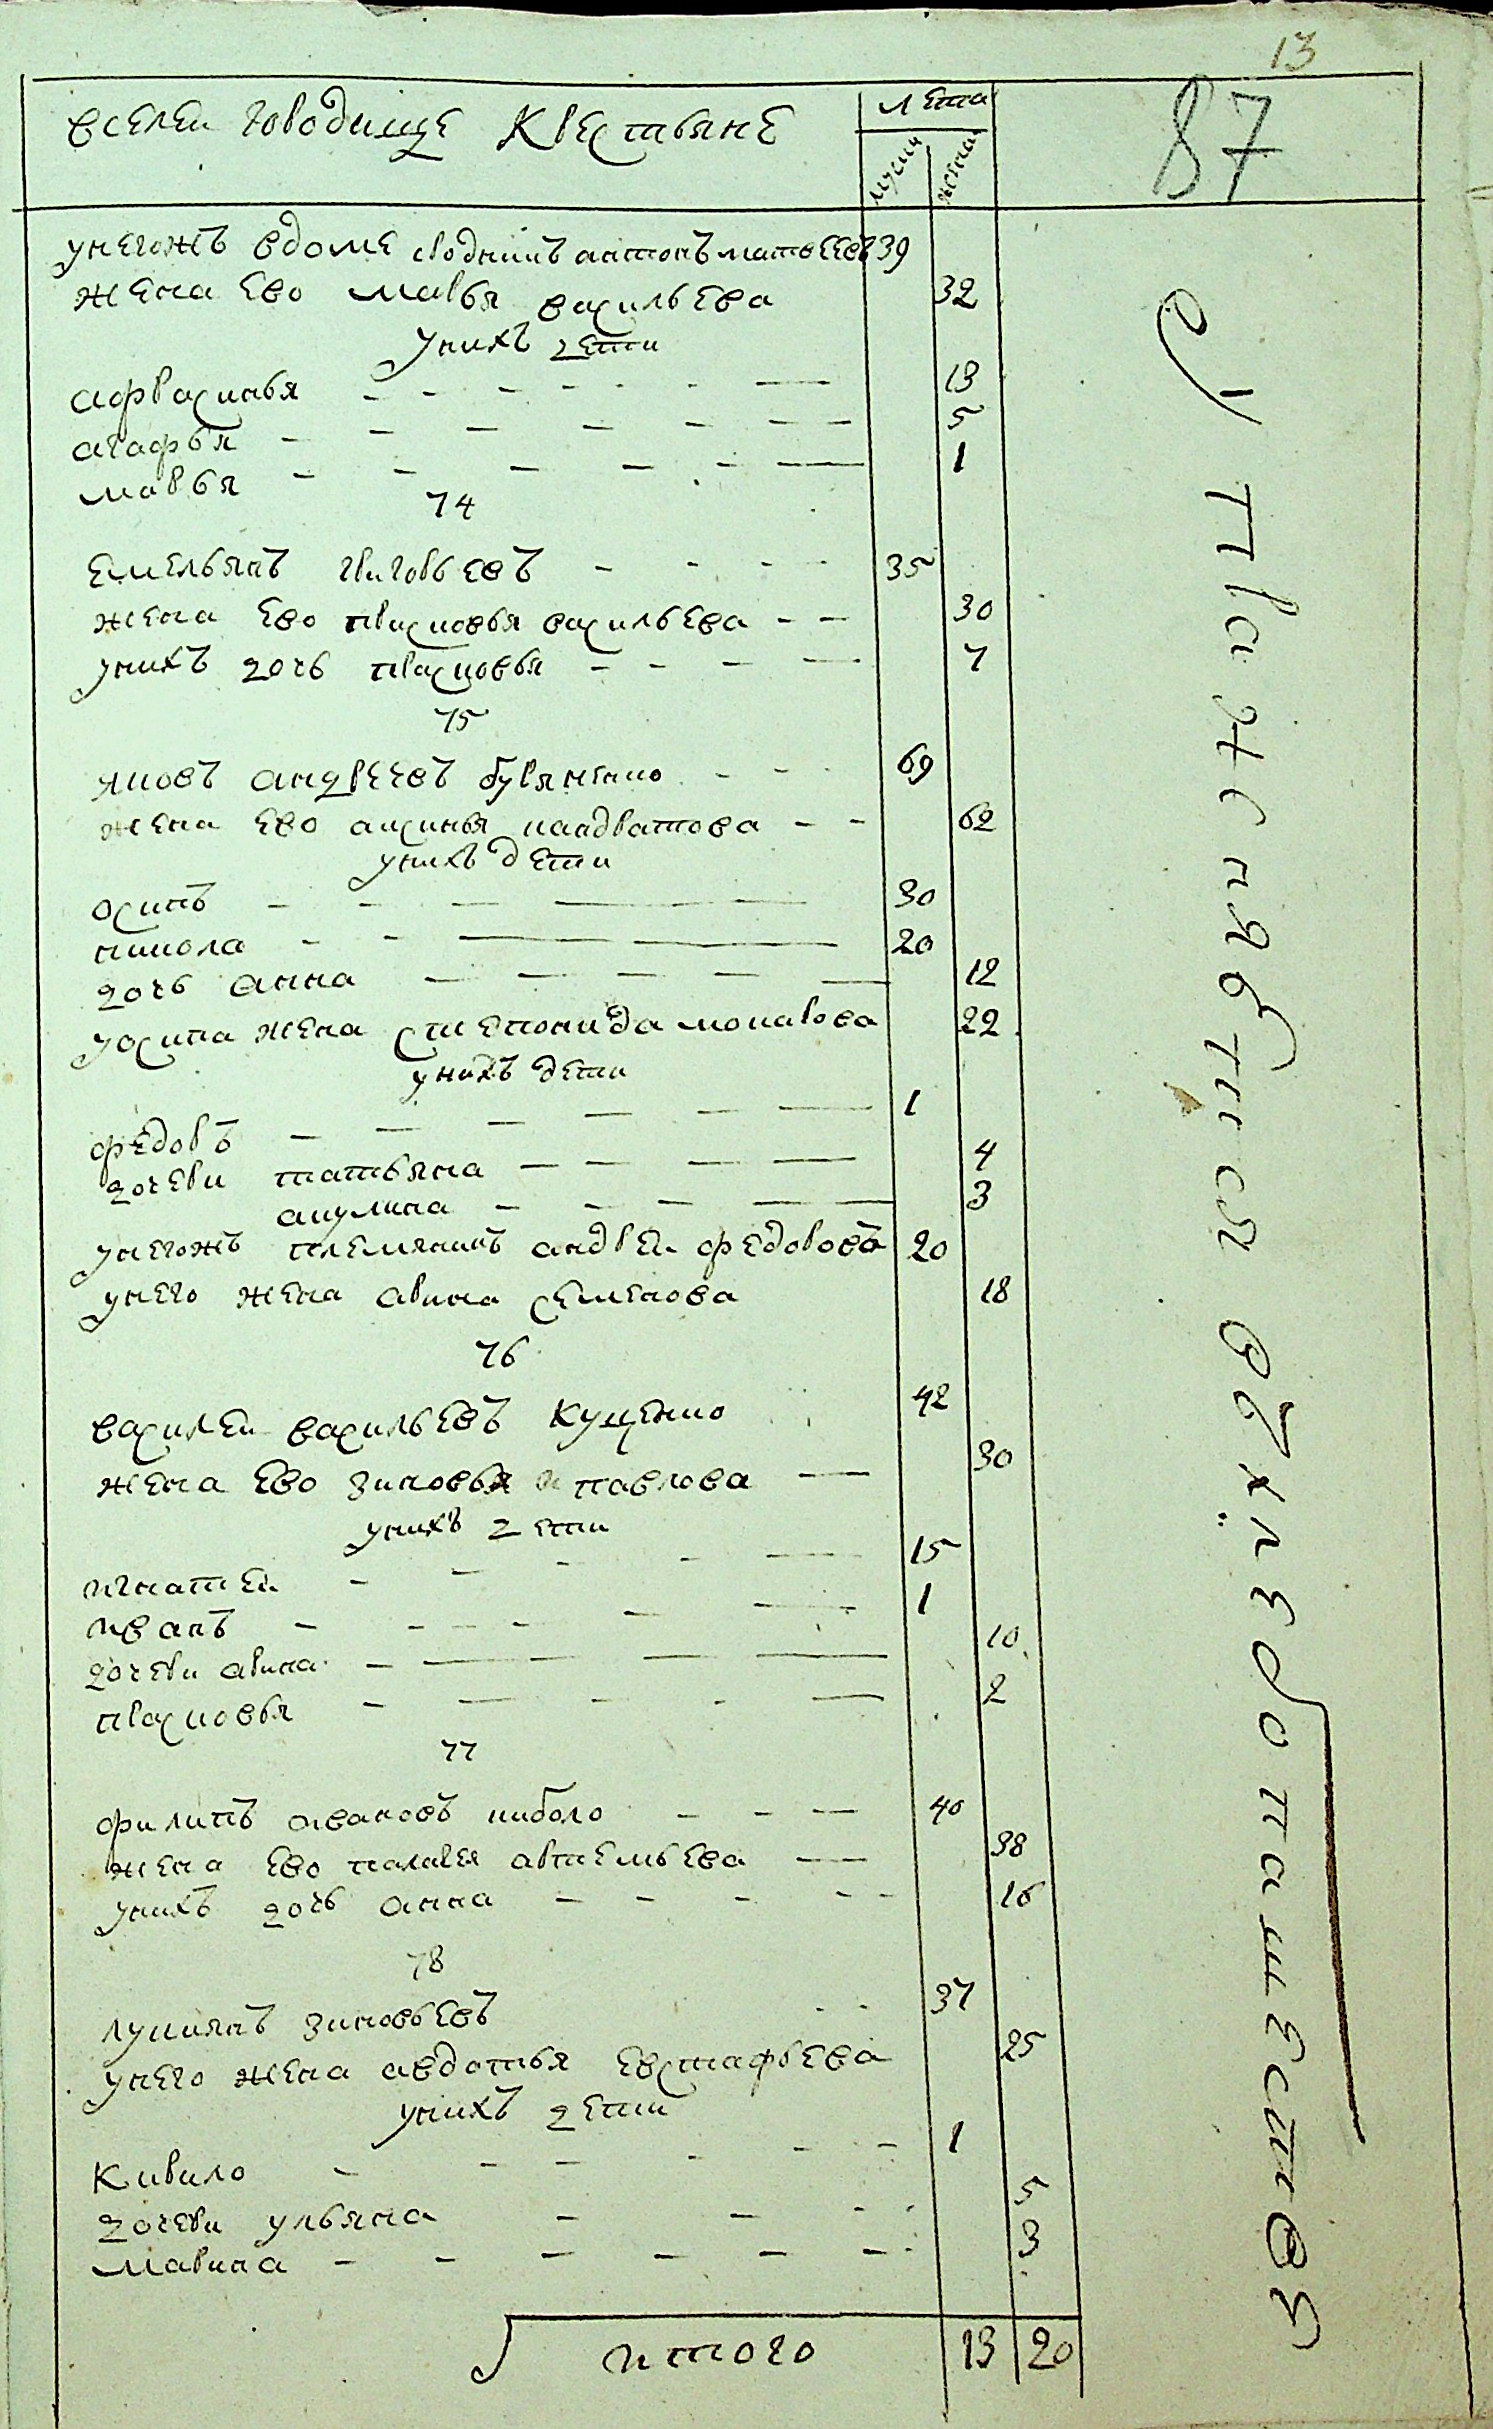 13
87
вселеи Городище Крестьяне
лета
муска
женска
унегожъ вдоме сводникъ антонъ матвеевъ 39
жена ево мавья васильева 32
унихъ дети
афросинья 13
агафья 5
мавья 1
74
емельянъ григорьевъ 35
жена ево прасковья васильева 30
унихъ дочь прасковья 7
75
яковъ андреевъ буряченко 69
жена ево аксинья кандратова 62
унихъ дети
осипъ 30
никола 20
дочь анна 12
уосипа жена степонида макарова 22
унихъ дети
федоръ 1
дочери татьяна 4
акулина 3
унегожъ племяникъ андреи федоровъ 20
унего жена арина семенова 18
76
василеи васильевъ Куценко 42
жена ево зиновья павлова 30
унихъ дети
игнатеи 15
иванъ 1
дочери арина 10
прасковья 2
77
филипъ ивановъ кибало 40
жена ево палагея артемьева 38
унихъ дочь анна 16
78
лукиянъ зиновьевъ 37
унего жена авдотья евстафьева 25
унихъ дети
Кирило 1
дочери ульяна 5
марина 3
итого 13 20